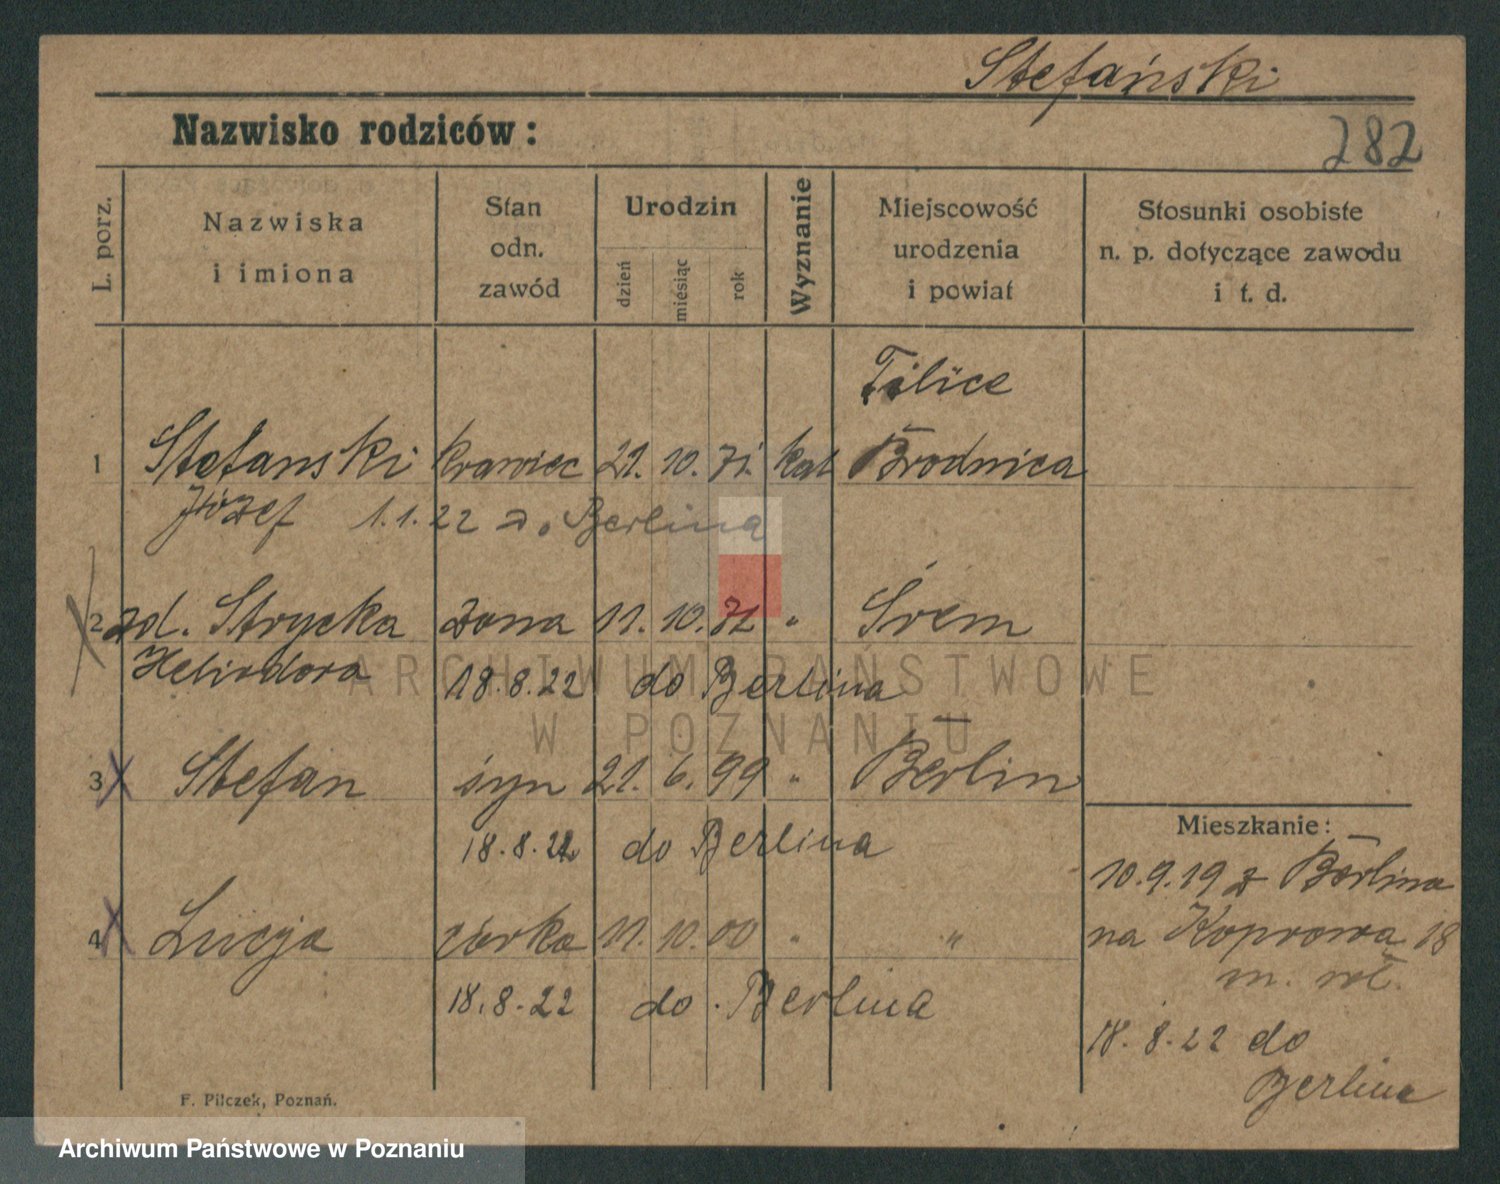 Stefański
Nazwisko rodziców:
282
L. porz.
Nazwiska
i imiona
Stan
odn.
zawód
Urodzin
dzień
miesiąc
rok
Wyznanie
Miejscowość
urodzenia
i powiat
Stosunki osobiste
n. p. dotyczące zawodu
i t. d.
Filice
1 Stefanski krawiec 21. 10. 71. kat Brodnica
Józef 1.1.22 z. Berlina
2 zd. Strycka żona 11. 10. 71 " Śrem
Heliodora 18.8.22 do Berlina
3 Stefan syn 21. 6. 99 " Berlin
18.8.22 do Berlina
4 Lucja córka 11. 10. 00 " "
18.8.22 do Berlina
Mieszkanie:
10.9.19 z Berlina
na Koprowa 18
m. wł.
18.8.22 do
Berlina
F. Pilczek, Poznań.
ARCHIWUM PAŃSTWOWE
W POZNANIU
Archiwum Państwowe w Poznaniu